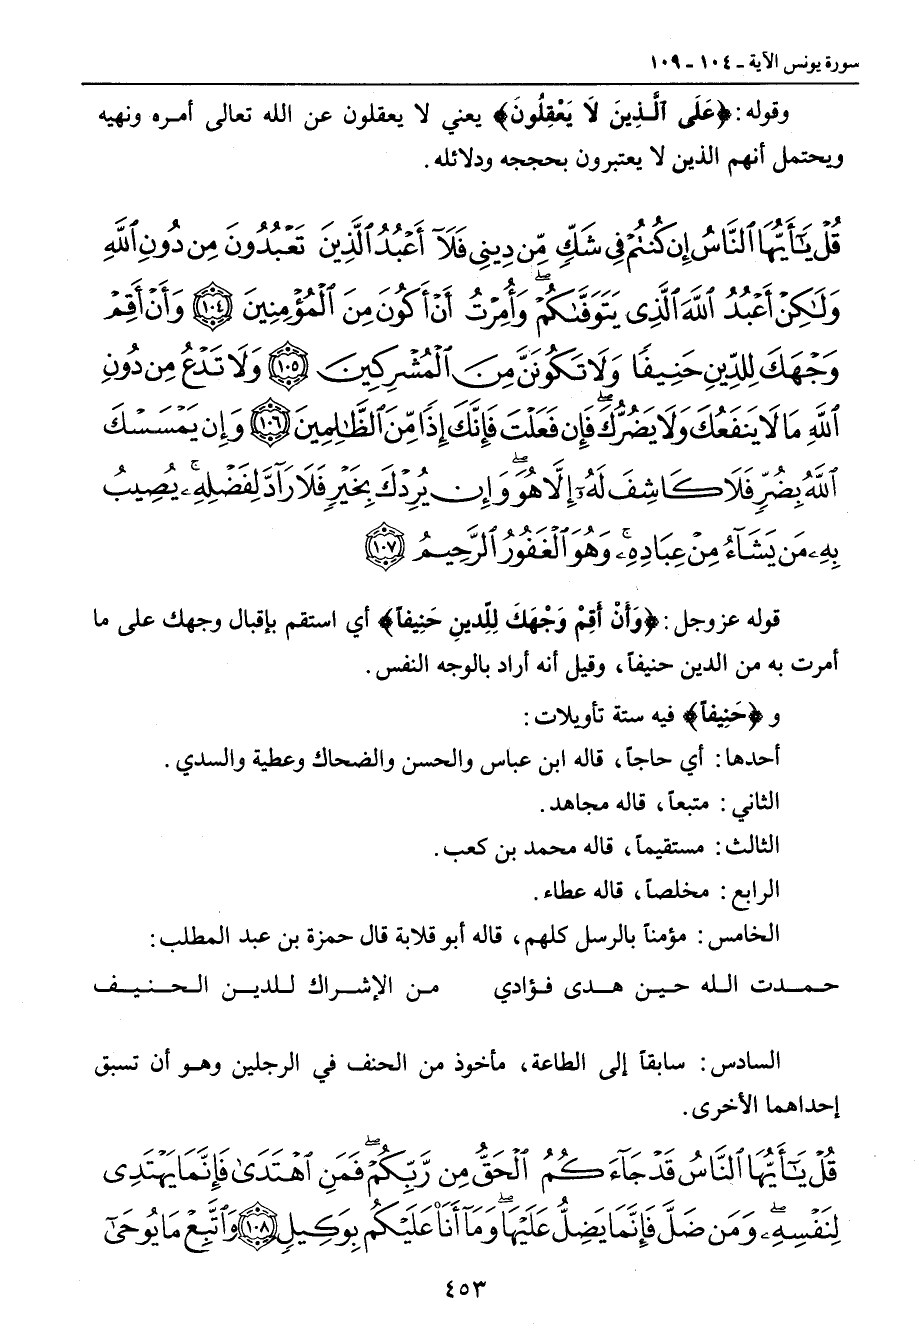 سورة يونس الآية ـ ١٠٤ ـ ١٠٩
وقوله: ﴿عَلَى الَّذِينَ لَا يَعْقِلُونَ﴾ يعني لا يعقلون عن الله تعالى أمره ونهيه
ويحتمل أنهم الذين لا يعتبرون بحججه ودلائله.
قُلْ يَٰٓأَيُّهَا ٱلنَّاسُ إِن كُنتُمْ فِى شَكٍّ مِّن دِينِى فَلَآ أَعْبُدُ ٱلَّذِينَ تَعْبُدُونَ مِن دُونِ ٱللَّهِ
وَلَٰكِنْ أَعْبُدُ ٱللَّهَ ٱلَّذِى يَتَوَفَّىٰكُمْ ۖ وَأُمِرْتُ أَنْ أَكُونَ مِنَ ٱلْمُؤْمِنِينَ ١٠٤ وَأَنْ أَقِمْ
وَجْهَكَ لِلدِّينِ حَنِيفًا وَلَا تَكُونَنَّ مِنَ ٱلْمُشْرِكِينَ ١٠٥ وَلَا تَدْعُ مِن دُونِ
ٱللَّهِ مَا لَا يَنفَعُكَ وَلَا يَضُرُّكَ ۖ فَإِن فَعَلْتَ فَإِنَّكَ إِذًا مِّنَ ٱلظَّٰلِمِينَ ١٠٦ وَإِن يَمْسَسْكَ
ٱللَّهُ بِضُرٍّ فَلَا كَاشِفَ لَهُۥٓ إِلَّا هُوَ ۖ وَإِن يُرِدْكَ بِخَيْرٍ فَلَا رَآدَّ لِفَضْلِهِۦ ۚ يُصِيبُ
بِهِۦ مَن يَشَآءُ مِنْ عِبَادِهِۦ ۚ وَهُوَ ٱلْغَفُورُ ٱلرَّحِيمُ ١٠٧
قوله عزوجل: ﴿وَأَنْ أَقِمْ وَجْهَكَ لِلدِّينِ حَنِيفاً﴾ أي استقم بإقبال وجهك على ما
أمرت به من الدين حنيفاً، وقيل أنه أراد بالوجه النفس.
و ﴿حَنِيفاً﴾ فيه ستة تأويلات:
أحدها: أي حاجاً، قاله ابن عباس والحسن والضحاك وعطية والسدي.
الثاني: متبعاً، قاله مجاهد.
الثالث: مستقيماً، قاله محمد بن كعب.
الرابع: مخلصاً، قاله عطاء.
الخامس: مؤمناً بالرسل كلهم، قاله أبو قلابة قال حمزة بن عبد المطلب:
حمدت الله حين هدى فؤادي من الإشراك للدين الحنيف
السادس: سابقاً إلى الطاعة، مأخوذ من الحنف في الرجلين وهو أن تسبق
إحداهما الأخرى.
قُلْ يَٰٓأَيُّهَا ٱلنَّاسُ قَدْ جَآءَكُمُ ٱلْحَقُّ مِن رَّبِّكُمْ ۖ فَمَنِ ٱهْتَدَىٰ فَإِنَّمَا يَهْتَدِى
لِنَفْسِهِۦ ۖ وَمَن ضَلَّ فَإِنَّمَا يَضِلُّ عَلَيْهَا ۖ وَمَآ أَنَا۠ عَلَيْكُم بِوَكِيلٍ ١٠٨ وَٱتَّبِعْ مَا يُوحَىٰٓ
٤٥٣